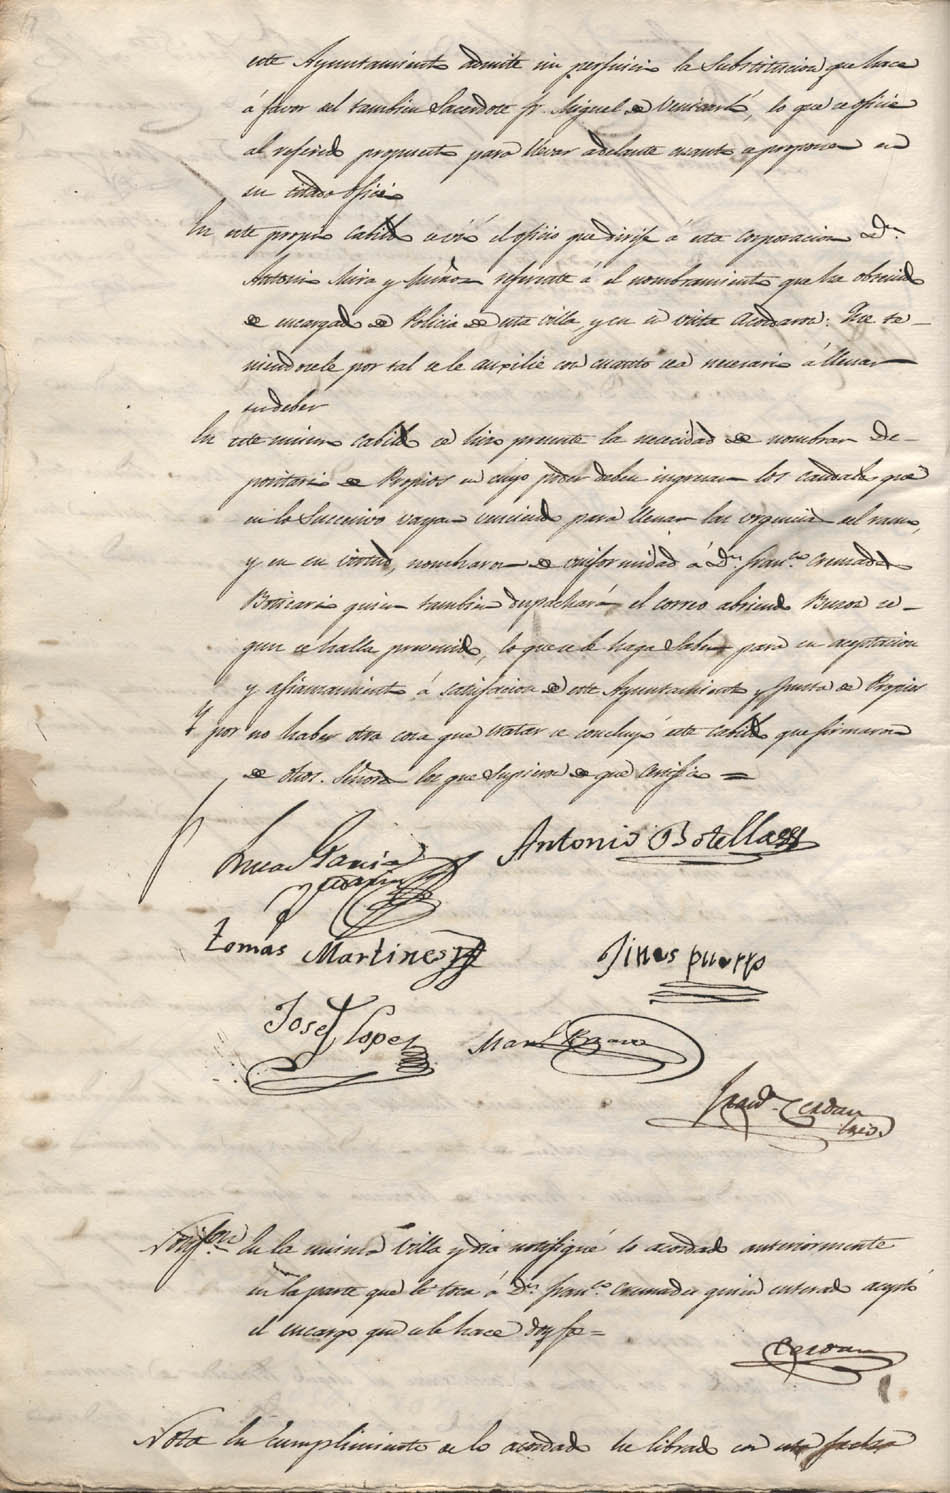 este Ayuntamiento admite sin perjuicio la Substitucion que hace
á favor del tambien Sacerdote fr. Miguel de Venicarló, lo que se oficie
al referido propuesto para llevar adelante cuanto se propone en
su citado oficio
En este propio Cabildo se vió el oficio que dirije á esta corporacion Dn.
Antonio Mira y Muñoz referente á el nombramiento que ha obtenido
de encargado de Policia de esta villa, y en su vista Acordaron: Que te-
niendosele por tal se le auxilie con cuanto sea necesario á llenar
su deber
En este mismo Cabildo se hizo presente la necesidad de nombrar De-
positario de Propios en cuyo poder deben ingresar los caudales que
en lo Succesivo vayan venciendo para llenar las urgencias del ramo,
y en su virtud, nombraron de conformidad á Dn. franco. Cremades
Boticario quien tambien despachará el correo abriendo Buzon se-
gun se halla prevenido, lo que se le haga saber para su aceptacion
y afianzamiento á satisfaccion de este Ayuntamiento y Junta de Propios
Y por no haber otra cosa que tratar se concluyó este Cabildo que firmaron
de dhos. Señores los que supieron de que Certifico =
Lucas Garcia
Antonio Botella
tomás Martines
Jines puerto
Josef Lopez
Manl. Bravo
Cerdan
Srio.
Notifon. En la misma Villa y dia notifiqué lo acordado anteriormente
en la parte que le toca á Dn. franco. Cremades quien enterado aceptó
el encargo que se le hace doy fe =
Cerdan
Nota En cumplimiento de lo acordado he librado con esta fecha